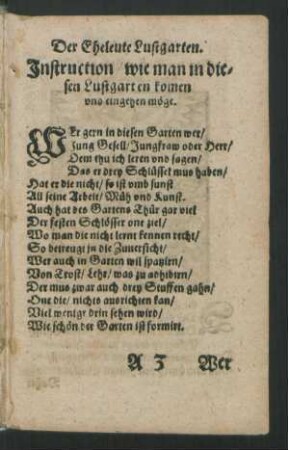 Der Eheleute Lustgarten.
Instruction / wie man in die-
sen Lustgarten komen
vnd eingehen möge.
WEr gern in diesen Garten wer /
Jung Gesell / Jungfraw oder Herr /
Dem thu ich leren vnd sagen /
Das er drey Schlüssel mus haben /
Hat er die nicht / so ist vmb sunst
All seine Arbeit / Müh vnd Kunst.
Auch hat des Gartens Thür gar viel
Der festen Schlösser one ziel /
Wo man die nicht lernt kennen recht /
So betreugt in die Zuuersicht /
Wer auch in Garten wil spatzirn /
Von Trost / Lehr / was zu adhibirn /
Der mus zwar auch drey Stuffen gahn /
One die / nichts ausrichten kan /
Viel wenigr drin sehen wird /
Wie schön der Garten ist formirt.
A 3 Wer